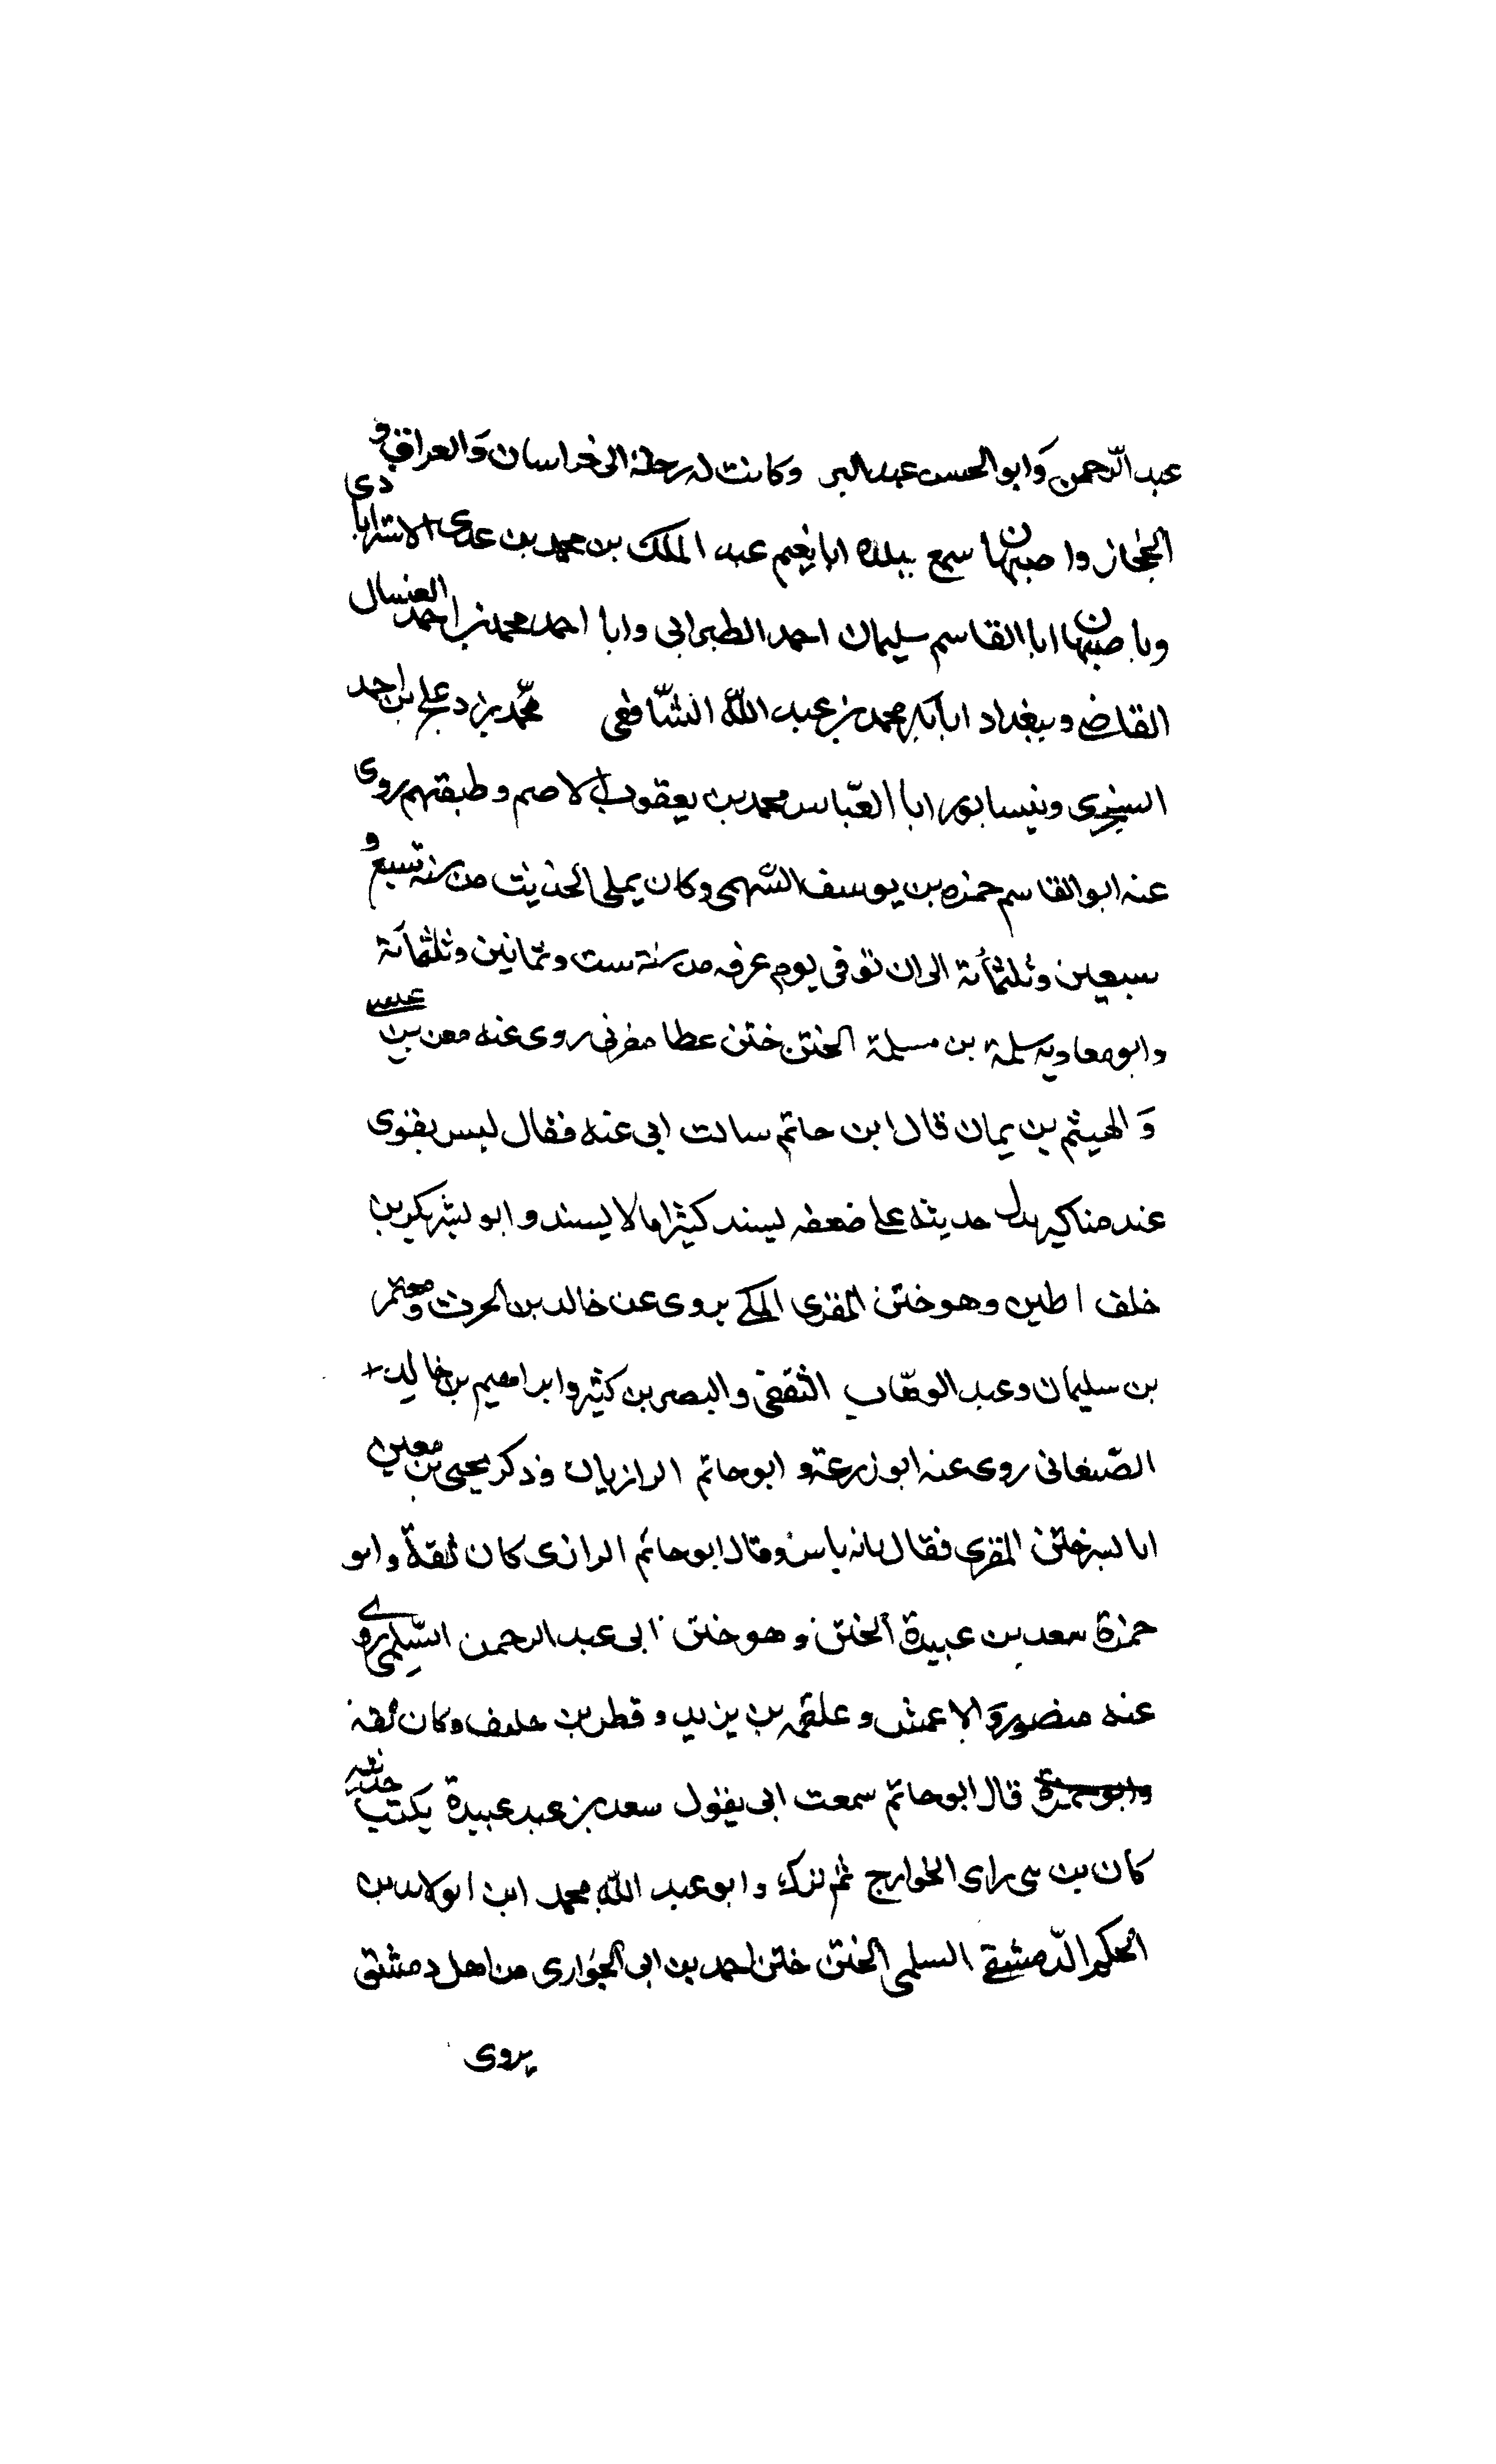 عبد الرّحمن وَابو الحسن عبد البر وكانت له رحلة الى خراسان وَالعراق و
الحجاز واصبهان سمع ببلده ابا نعيم عبد الملك بن محمد بن عدى الاسترابادى
وباصبهان ابا القاسم سليمان احمد الطبرانى وابا احمد محمد بن احمد العسال
القاضى وببغداد ابا بكر محمد بن عبد اللّٰه الشّافعى محّمد بن دعلج بن احمد
السنجرى ونيسابور ابا العبّاس محمد بن يعقوب الاصم وطبقتهم روى
عنه ابو القاسم حمزه بن يوسف السّهمى وكان يملى الحديث من سنه تسع و
سبعين وثلثمأئة الى ان توفى يوم عرفه من سنة ست وثمانين وثلثمائة
وابو معاويه سلمة بن مسلمة الختن ختن عطا مغربى روى عنه معن بن عيسى
وَ الهيثم بن يمان قال ابن حاتم سالت ابى عنه فقال ليس بقوى
عند مناكير يدل حديثه على ضعفه يسند كيثرا مالا يسند وابو بشر بكر بن
خلف اطين وهو ختن المقرى المكى يروى عن خالد بن الحرث ومعتمر
بن سليمان وعبد الوهّاب الثقفى والبصر بن كثير وابراهيم بن خالد
الصّنعانى روى عنه ابو زرعة و ابو حاتم الرازيان وذكر يحيى بن معين
ابا بشر ختن المقرى فقال مابه باس وقال ابو حاتم الرازى كان ثقة وابو
حمزة سعد بن عبيدة الختن وهو ختن ابى عبد الرحمن السّلمى روى
عنه منصور وَالاعمش وعلقمه بن يزيد وقطر بن خليف وكان ثقه
وابو حمزة قال ابو حاتم سمعت ابى يقول سعد بن عبد عبيدة يكتب حديثه
كان راى الخوارج ثم تركه وابو عبد اللّٰه محمد ابن الولاىد بن
الحكم الدّمشقى السلمى الختن ختن احمد بن ابى الحوارى من اهل دمشق
يروى